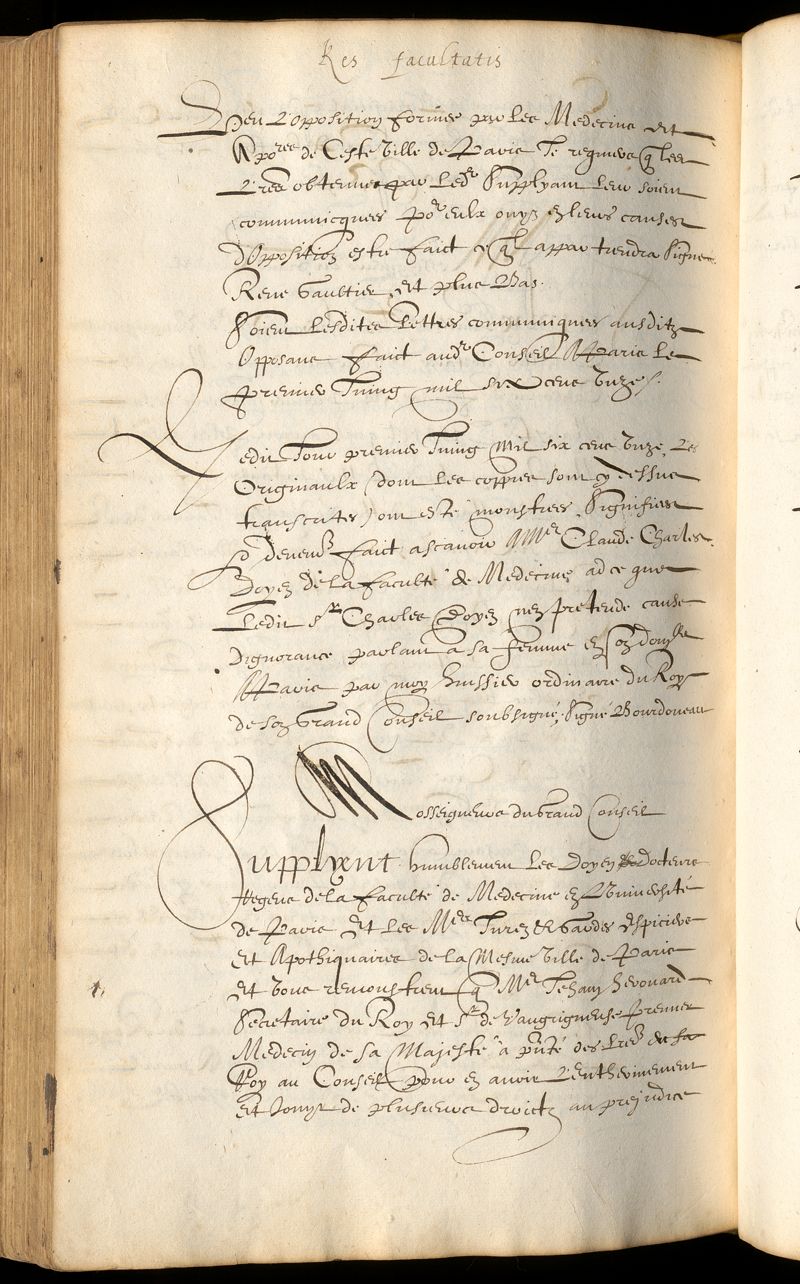 Res facultatis
Veu L'opposition formee par les Medecins et
Apo.res de Ceste Ville de Paris Je requiers q les
L'res obtenues par led.t Supplyant leur soient
communicquees po.r eulx ouys en leurs causes
d'Opposition estre faict ce q.l appartiendra Signe
Rene Gaultier, Et plus Bas.
Soient Lesdites Lettres communiquees ausditz
Opposans faict aud.t Conseil A Paris Le
premier Juing mil six cens Unze /.
Ledit Jour premier Juing Mil six cens Unze, Les
Originaulx (dont Les coppies sont cy dessus
transcrites) ont este monstrees, Signifiees
faict ascavoir A M.e Claude Charles
Doyen de la Faculté de Medecine, ad ce que
Ledit s.r Charles Doyen n'en pretende cause
Dignorance parlant a sa femme en son dom.lle
A Paris par moy huissier ordinaire du Roy
de son Grand Conseil soubsigné, Signé Bourdoneau
Mosseigneurs du Grand Conseil
Supplyent humblement Les Doyen docteurs
Regens de la Faculté de Medecine en L'Université
de Paris Et Les M.es Jurez & Gardes Espiciers
Et Apothiquaires de la Mesme Ville de Paris
Et Vous remonstrent q M.e Jehan herouard
Secretaire du Roy Et s.r de Vaugrigneuse premier
Medecin de sa Majesté a p'nté des L'res du
Roy au Conseil pour en avoir L'entherinement
Et Jouyr de plusieurs droictz au prejudice